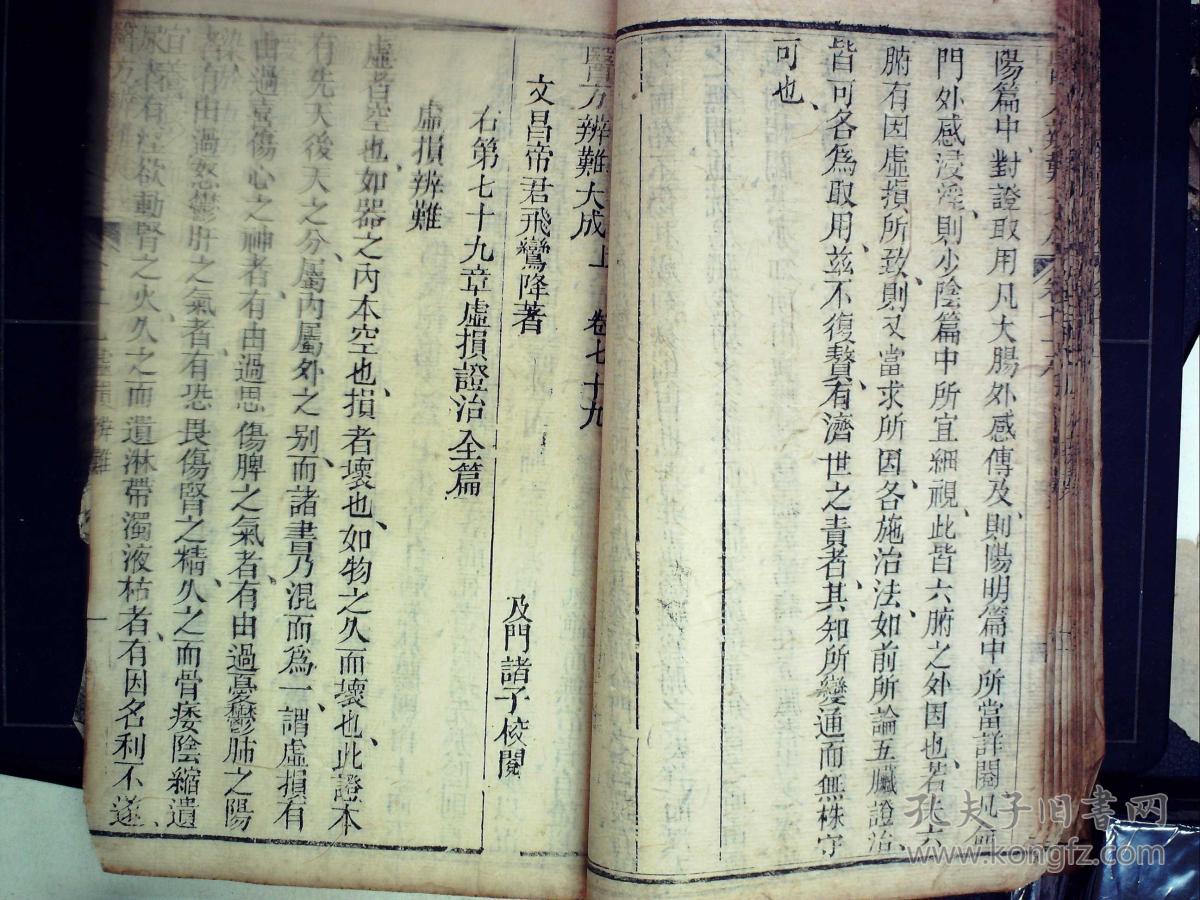 陽篇中、對證取用凡大腸外感傳及、則陽明篇中所當詳閱、凡
門外感浸淫、則少陰篇中所宜細視、此皆六腑之外因也、若夫六
腑有因虛損所致、則又當求所因、各施治法、如前所論五臟證治、
皆可各爲取用、茲不復贅、有濟世之責者、其知所變通而無株守
可也、
醫方辨難大成上 卷七十九
文昌帝君飛鸞降著
及門諸子校閱
右第七十九章虛損證治全篇
虛損辨難
虛者空也、如器之內本空也、損者壞也、如物之久而壞也、此證本
有先天後天之分、屬內屬外之别、而諸書乃混而爲一、謂虛損有
由過喜傷心之神者、有由過思傷脾之氣者、有由過憂鬱肺之陽
者、有由過怒鬱肝之氣者、有恐畏傷腎之精、久之而骨痿陰縮遺
尿者、有淫欲動腎之火、久之而遺淋帶濁液枯者、有因名利不遂、
虛損辨難
孔夫子旧书网
www.kongfz.com